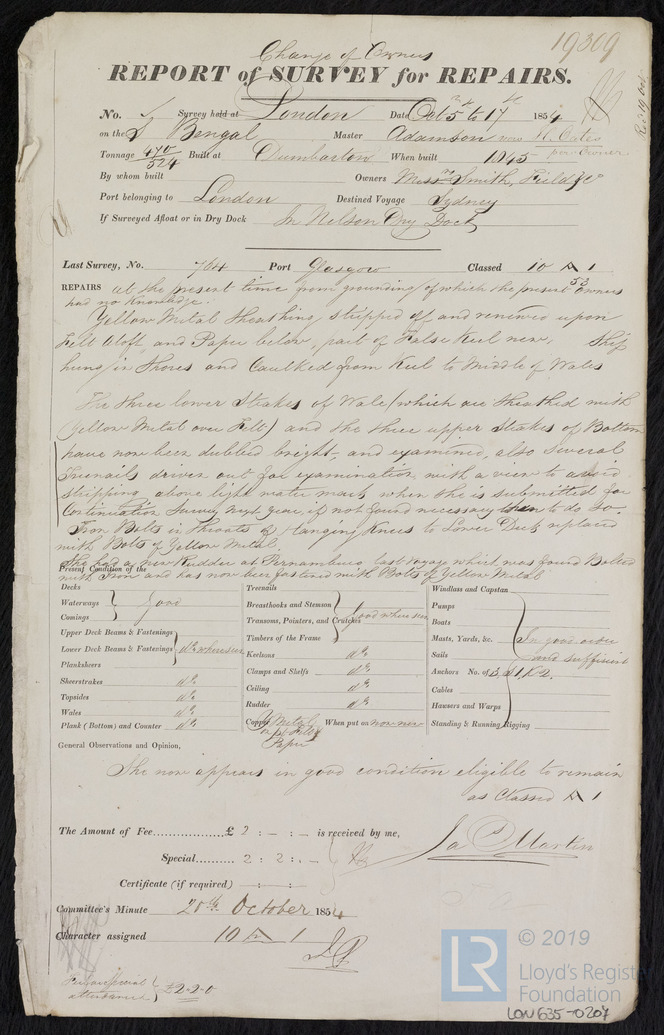 19309
Change of Owners
REPORT of SURVEY for REPAIRS.
No. Survey held at London Date Oct 5th to 17 1854
on the S Bengal Master Adamson
Tonnage 470/524 Built at Dumbarton When built 1845 per Owner
By whom built Owners Messrs Smith, Field & Co
Port belonging to London Destined Voyage Sydney
If Surveyed Afloat or in Dry Dock In Nelson Dry Dock
Last Survey, No. 704 Port Glasgow 53 Classed 10 A 1
REPAIRS at the present time from grounding of which the present owners
had no knowledge.
Yellow Metal Sheathing stripped off and renewed upon
Felt Aloft and Paper below, part of False Keel new, Ship
hung in Shores and Caulked from Keel to Middle of Wales
The three lower Strakes of Wale (which are Sheathed with
Yellow Metal over Felt) and the three upper Strakes of Bottom
have now been dubbed bright and examined, also several
Treenails driven out for examination with a view to avoid
stripping above light water mark when she is submitted for
Continuation Survey next year, if not found necessary then to do so.
Iron Bolts in Throats of Hanging Knees to Lower Deck replaced
with Bolts of Yellow Metal.
She had a new Rudder at Pernambuco last voyage which was found Bolted
with Iron and has now been fastened with Bolts of Yellow Metal
Present Condition of the
Decks
Waterways } Good
Comings
Upper Deck Beams & Fastenings
Lower Deck Beams & Fastenings } do where seen
Planksheers
Sheerstrakes do
Topsides do
Wales do
Plank (Bottom) and Counter do
Treenails
Breasthooks and Stemson
Transoms, Pointers, and Crutches } Good where seen
Timbers of the Frame
Keelsons do
Clamps and Shelfs do
Ceiling do
Rudder do
Copper Y Metal
on Felt &
Paper
When put on now new
Windlass and Capstan
Pumps
Boats
Masts, Yards, &c. In good order
Sails and sufficient
Anchors No. of 3, S 1, K 2
Cables
Hawsers and Warps
Standing & Running Rigging
General Observations and Opinion,
She now appears in good condition eligible to remain
as Classed A 1
The Amount of Fee £ 2 : - : - is received by me,
Special 2 : 2 : -
Jas P Martin
Certificate (if required) - : -
Committee's Minute 20th October 1854
Character assigned 10 A 1
Fee for Special
attendance } £2-2-0
LR © 2019
Lloyd's Register
Foundation
LON635-0207